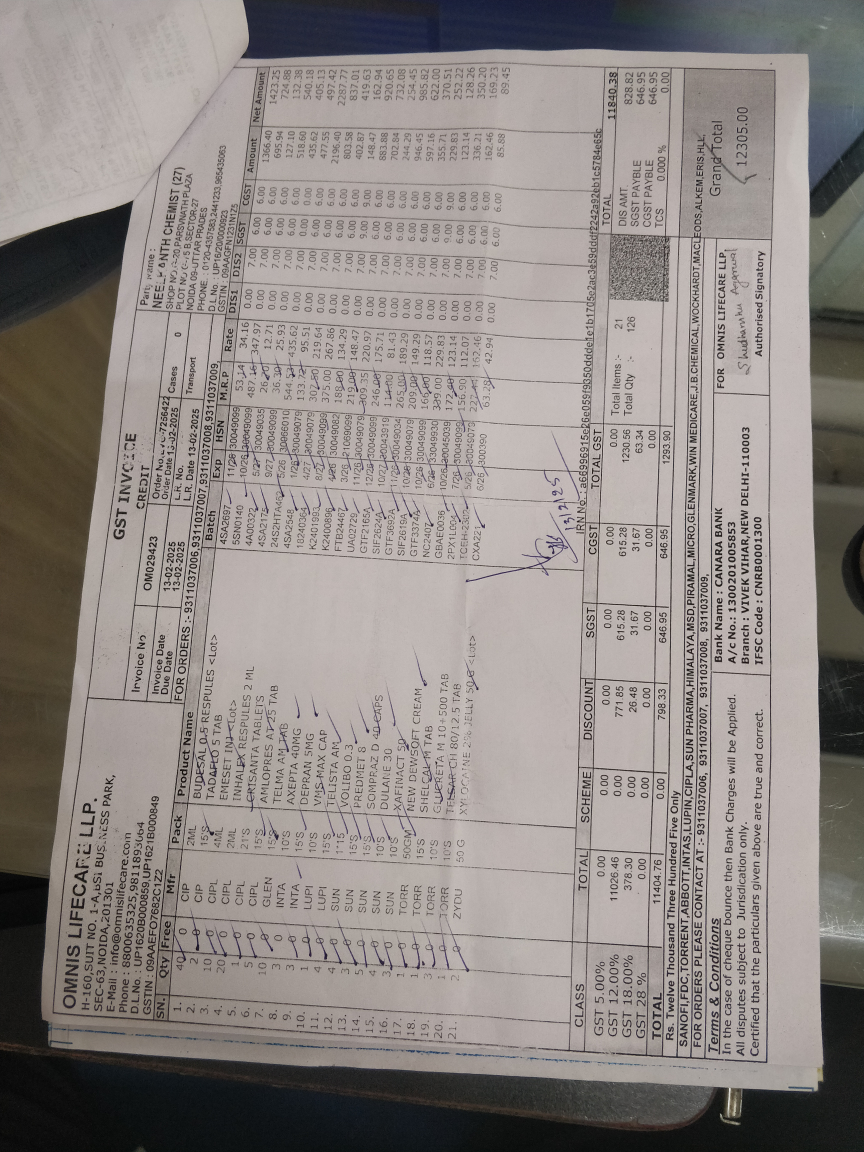 GST INVOICE
CREDIT
OMNIS LIFECARE LLP.
H-160,SUIT NO. 1-A,BSI BUSINESS PARK,
SEC-63,NOIDA,201301
E-Mail : info@omnislifecare.com
Phone : 8800635325,9811893064
D.L.No. : UP1620B000859,UP1621B000849
GSTIN : 09AAEFO7682C1Z2
Invoice No OM029423
Invoice Date 13-02-2025
Due Date 13-02-2025
Order No.
Order Date 13-02-2025
L.R. No. Cases 0
L.R. Date 13-02-2025 Transport
Party Name :
NEELKANTH CHEMIST (27)
PLOT NO PARSVNATH PLAZA
NOIDA 09-UTTAR PRADES
FOR ORDERS :- 9311037006,9311037007,9311037008,9311037009
SN. Qty Free Mfr Pack Product Name Batch Exp HSN M.R.P Rate DIS1 DIS2 SGST CGST Amount Net Amount
1. 40 0 CIP 2ML BUDESAL 0.5 RESPULES <Lot> 4SA2697 11/26 30049099 53.14 34.16 0.00 7.00 6.00 6.00 1366.40 1423.25
2. 2 0 CIP 15'S DAFLO 5 TAB 5SN0140 10/26 30049099 347.97 0.00 7.00 6.00 6.00 695.94 724.88
3. 10 0 CIPL 4ML EMESET INJ <Lot> 4A00322 5/27 30049035 12.71 0.00 7.00 6.00 6.00 127.10 132.38
4. 20 0 CIPL 2ML INHALEX RESPULES 2 ML 9/27 30049099 25.93 0.00 7.00 6.00 6.00 518.60 540.18
5. 1 0 CIPL 21'S CRISANTA TABLETS 4SA2548 5/26 30066010 435.62 0.00 7.00 6.00 6.00 435.62 405.13
6. 5 0 CIPL 15'S AMLOPRES AT 25 TAB 18240364 11/26 30049079 133.72 95.51 0.00 7.00 6.00 6.00 477.55 497.42
7. 10 0 GLEN 15'S TELMA AM TAB 4/27 30049079 219.64 0.00 7.00 6.00 6.00 2196.40 2287.77
8. 3 0 INTA 10'S AXEPTA 40MG K2401993 8/27 30049079 375.00 267.86 0.00 7.00 6.00 6.00 803.58 837.01
9. 3 0 INTA 15'S DEPRAN 5MG K2400896 4/26 30049082 188.00 134.29 0.00 7.00 6.00 6.00 402.87 419.63
10. 1 0 LUPI 10'S VMS-MAX CAP FTB24467 3/26 21069099 219.00 148.47 0.00 7.00 9.00 9.00 148.47 162.94
11. 4 0 LUPI 15'S TELISTA AM UA02729 11/26 30049079 309.35 220.97 0.00 7.00 6.00 6.00 883.88 920.65
12. 4 0 SUN 1*15 VOLIBO 0.3 GTF2165A 12/26 30049099 246.00 175.71 0.00 7.00 6.00 6.00 702.84 732.08
13. 3 0 SUN 15'S PREDMET 8 SIF2624A 10/27 30043919 114.00 81.43 0.00 7.00 6.00 6.00 244.29 254.45
14. 5 0 SUN 15'S SOMPRAZ D 40 CAPS GTF3692A 30049034 265.00 189.29 0.00 7.00 6.00 6.00 946.45 985.82
15. 4 0 SUN 10'S DULANE 30 SIF2619A 10/26 30049079 209.00 149.29 0.00 7.00 6.00 6.00 597.16 622.00
16. 3 0 SUN 10'S XAFINACT 50 GTF3374A 10/26 30049099 166.00 118.57 0.00 7.00 6.00 6.00 355.71 370.51
17. 1 0 TORR 50GM NEW DEWSOFT CREAM NC2407 6/26 33049930 339.00 229.83 0.00 7.00 9.00 9.00 229.83 252.22
18. 1 0 TORR 15'S SHELCAL M TAB GBAE0036 10/26 30045039 172.00 123.14 0.00 7.00 6.00 6.00 123.14 128.26
19. 3 0 TORR 10'S GLUCRETA M 10+500 TAB 2PX1L004 7/26 30049099 156.90 112.07 0.00 7.00 6.00 6.00 336.21 350.20
20. 1 0 TORR 10'S TELSARCH 80/12.5 TAB 5/26 30049079 162.46 0.00 7.00 6.00 6.00 162.46 169.23
21. 2 0 ZYDU 50 G XYLOCAINE 2% JELLY 50 G <Lot> CXA227 6/26 300390 63.78 42.94 0.00 7.00 6.00 6.00 85.88 89.45
13/2/25
CLASS TOTAL SCHEME DISCOUNT SGST CGST TOTAL GST
GST 5.00% 0.00 0.00 0.00 0.00 0.00 0.00
GST 12.00% 11026.46 0.00 771.85 615.28 615.28 1230.56
GST 18.00% 378.30 0.00 26.48 31.67 31.67 63.34
GST 28 % 0.00 0.00 0.00 0.00 0.00 0.00
TOTAL 11404.76 0.00 798.33 646.95 646.95 1293.90
Total Items :- 21
Total Qty :- 126
TOTAL 11840.38
DIS AMT. 828.82
SGST PAYBLE 646.95
CGST PAYBLE 646.95
TCS 0.000 % 0.00
Rs. Twelve Thousand Three Hundred Five Only
SANOFI,FDC,TORRENT,ABBOTT,INTAS,LUPIN,CIPLA,SUN PHARMA,HIMALAYA,MSD,PIRAMAL,MICRO,GLENMARK,WIN MEDICARE,J.B.CHEMICAL,WOCKHARDT,MACLEODS,ALKEM,ERIS,HLL,
FOR ORDERS PLEASE CONTACT AT :- 9311037006, 9311037007, 9311037008, 9311037009,
Grand Total
12305.00
Terms & Conditions
In the case of cheque bounce then Bank Charges will be Applied.
All disputes subject to Jurisdication only.
Certified that the particulars given above are true and correct.
Bank Name : CANARA BANK
A/c No.: 1300201005853
Branch : VIVEK VIHAR,NEW DELHI-110003
IFSC Code : CNRB0001300
FOR OMNIS LIFECARE LLP
Shudhanshu Agarwal
Authorised Signatory